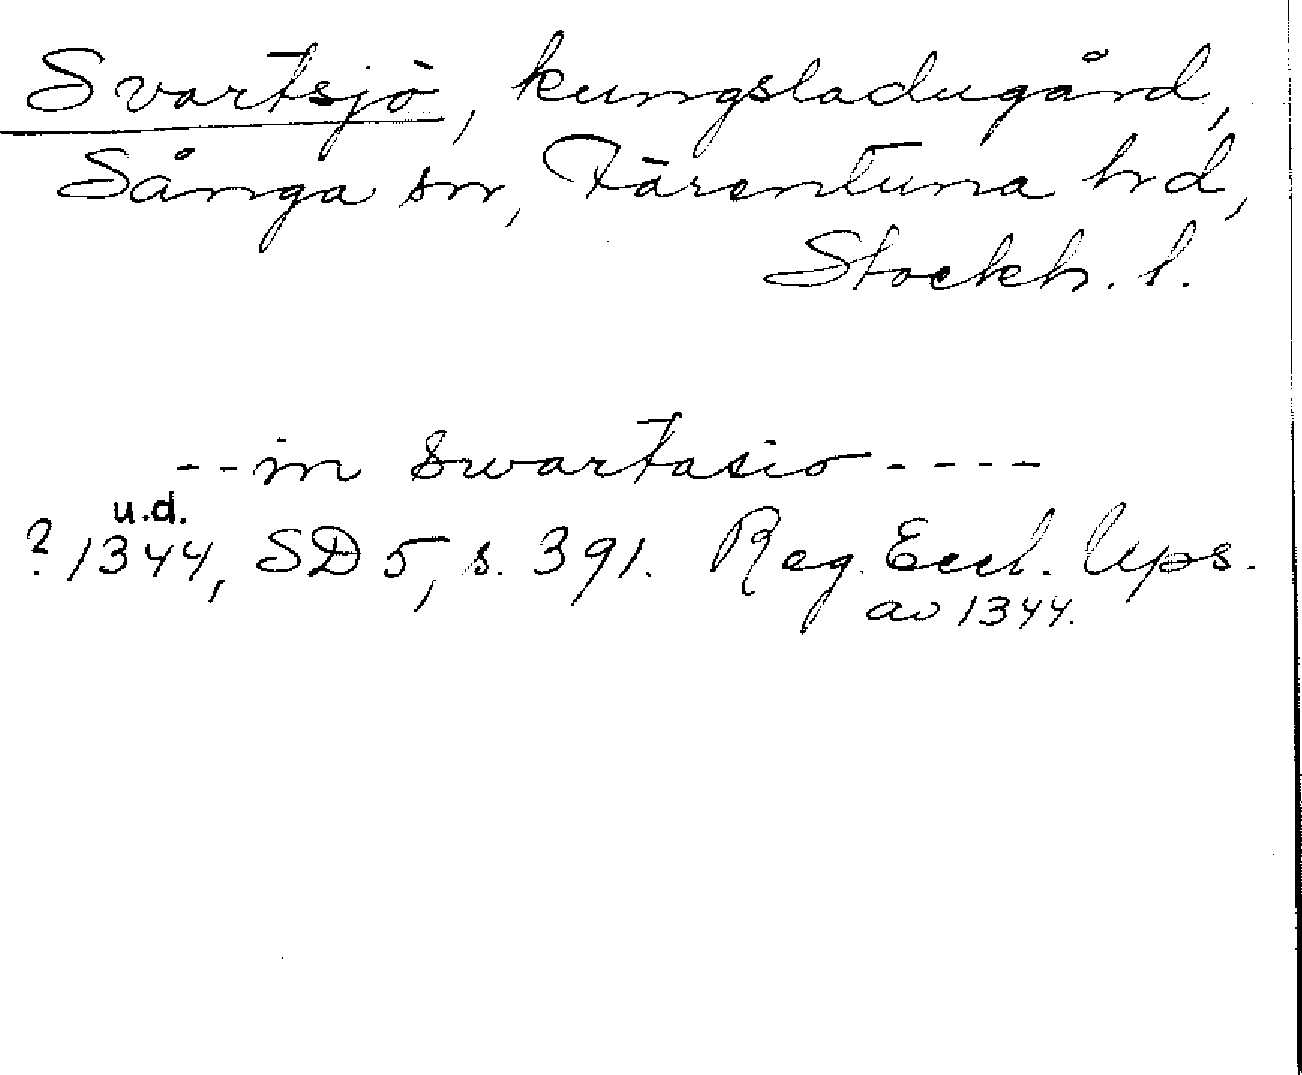 Svartsjö, kungsladugård,
Sånga sn, Färentuna hd,
Stockh. l.
--in Swartasio----
u.d.
? 1344, SD 5, s. 391. Reg. Eccl. Ups.
av 1344.